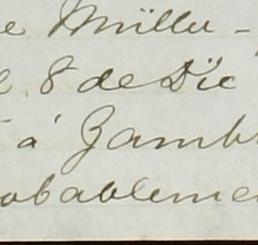 e Müller -
l 8 de Dic
á Zamb
obableme